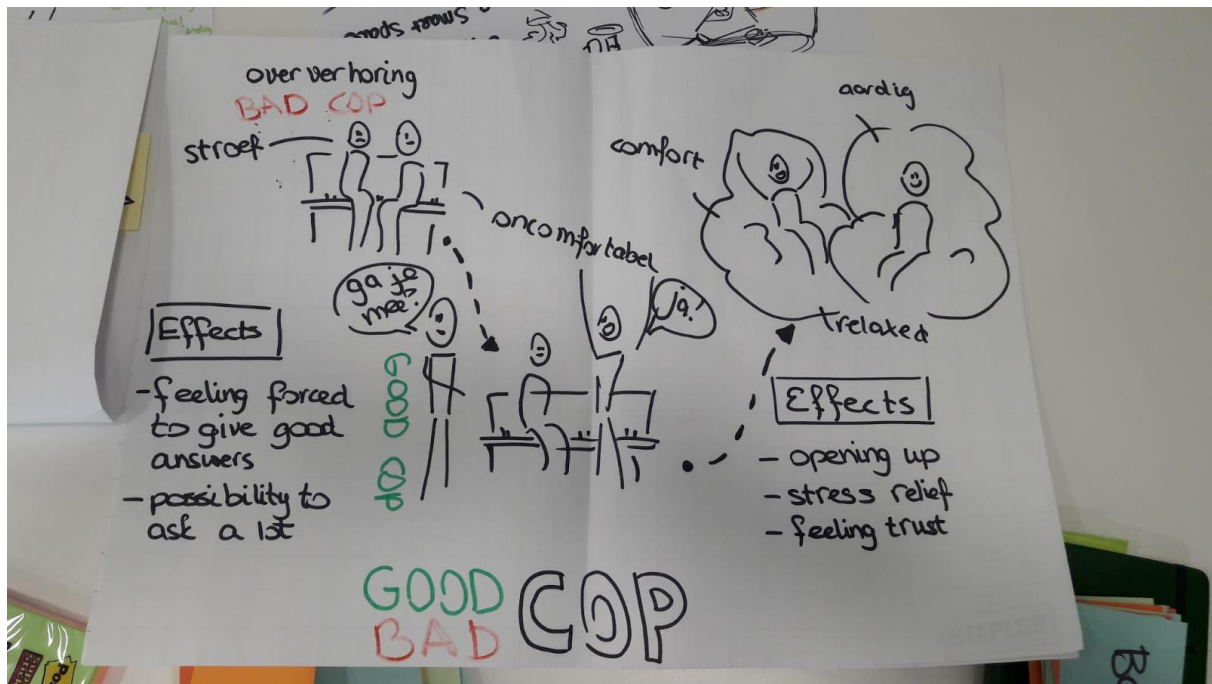 smart spaces
over verhoring
BAD COP
stroef
oncomfortabel
aardig
comfort
trelaxed
ga je
mee?
Ja!
GOOD
COP
Effects
-feeling forced
to give good
answers
-possibility to
ask a lot
Effects
- opening up
- stress relief
- feeling trust
GOOD
BAD
COP